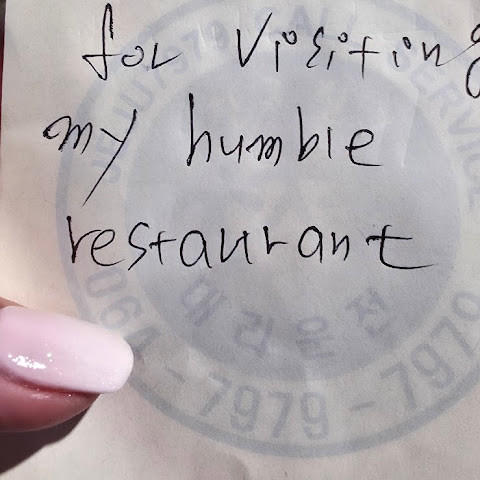 for visiting
my humble
restaurant
대리운전
064-7979-7979